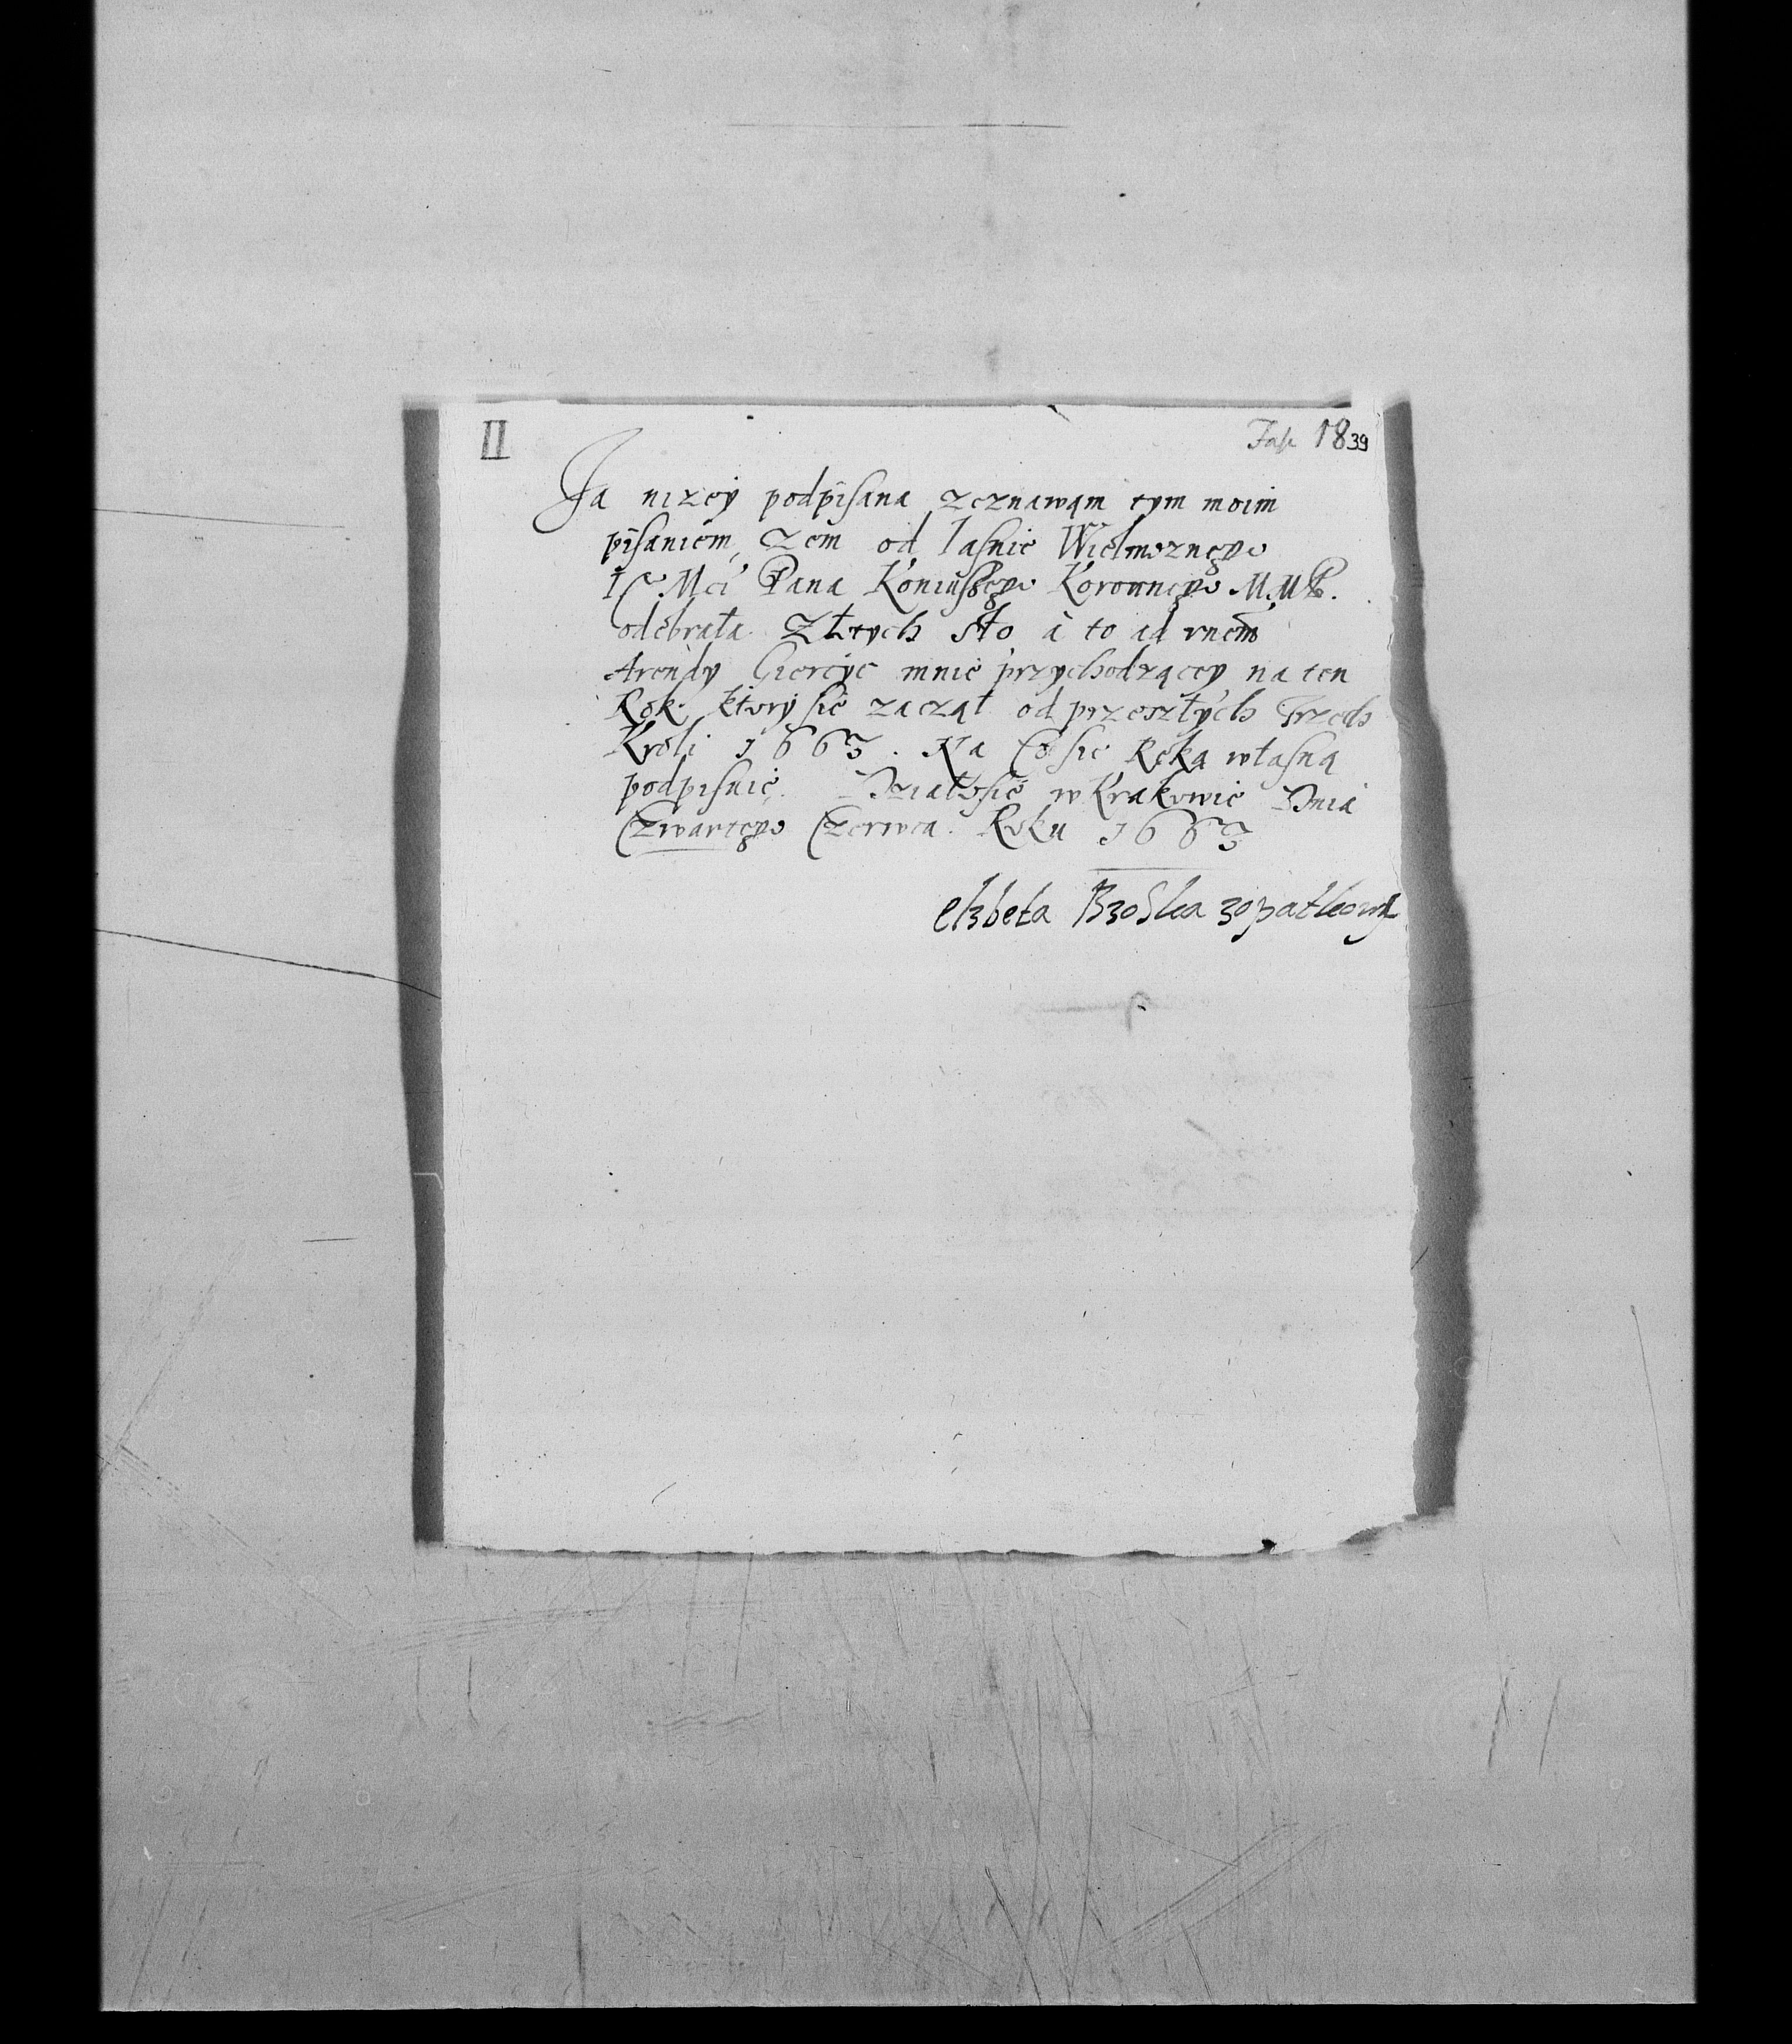 II
Fasc 1839
Ja nizey podpisana zeznawam tym moim
pisaniem, zem od Jasnie Wielmoznego
Je Mci Pana Koniuszego Koronnego M. M. P.
odebrała Złotych sto a to ad rnem
Arendy Giercyc mnie przychodzącey na ten
Rok ktory sie zaczął od przeszłych Trzech
Kroli 1663. Na Co sie Ręką własną
podpisuię. Działo sie w Krakowie Dnia
Czwartego Czerwca Roku 1663
elzbeta